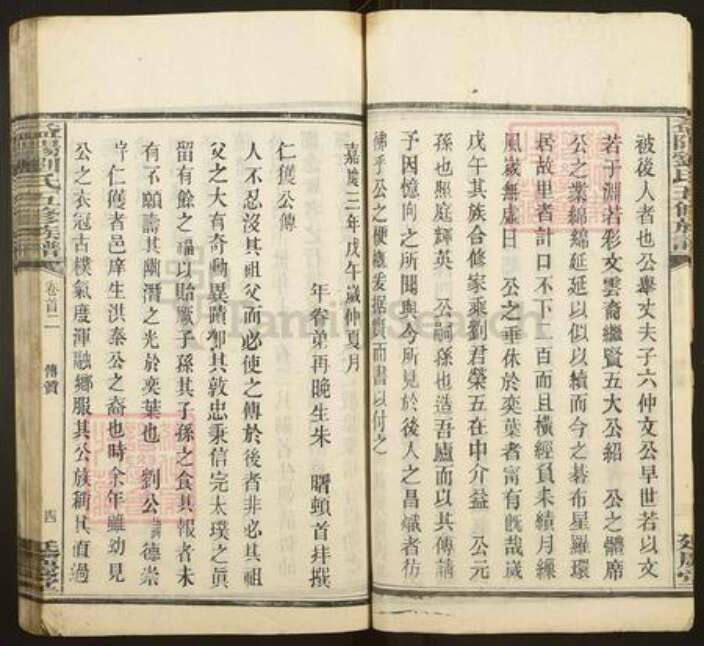 被後人者也公舉丈夫子六仲文公早世若以文
若于淵若彩文雲裔繼賢五大公紹　公之體席
公之業綿綿延延以似以續而今之碁布星羅環
居故里者計口不下二百而且橫經負耒績月繰
風歲無虛日　公之垂休於奕葉者甯有旣哉歲
戊午其族合修家乘劉君榮五在中介益　公元
孫也照庭輝英　公嗣孫也造吾廬而以其傳請
予因憶向之所聞與今所見於後人之昌熾者彷
彿乎公之梗概爰据願而書以付之
嘉慶三年戊午歲仲夏月
年眷弟再晚生朱　曙頓首拜撰
仁獲公傳
人不忍沒其祖父而必使之傳於後者非必其祖
父之大有奇勳異蹟卽其敦忠秉信完太璞之眞
留有餘之福以貽厥子孫其子孫之食其報者未
有不願譸其幽潛之光於奕葉也　劉公　德崇
字仁獲者邑庠生洪泰公之裔也時余年雖幼見
公之衣冠古樸氣度渾融鄉服其公族稱其直過
益陽劉氏五修族譜
卷首二
傳贊
四